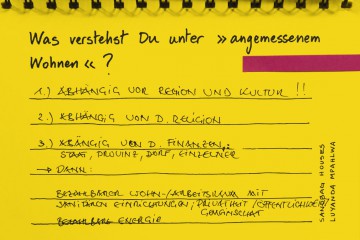 Was verstehst Du unter »angemessenem
Wohnen« ?
1.) ABHÄNGIG VOR REGION UND KULTUR !!
2.) ABHÄNGIG VON D. RELIGION
3.) ABÄNGIG VON D. FINANZEN,
STAAT, PROVINZ, DORF, EINZELNER
→ DANN:
BEZAHLBARER WOHN-/ARBEITSRAUM MIT
SANITÄREN EINRICHTUNGEN, PRIVATHEIT/ÖFFENTLICHKEIT
GEMEINSCHAFT
BEZAHLBARE ENERGIE
SANDBAG HOUSES
LUYANDA MPAHLWA